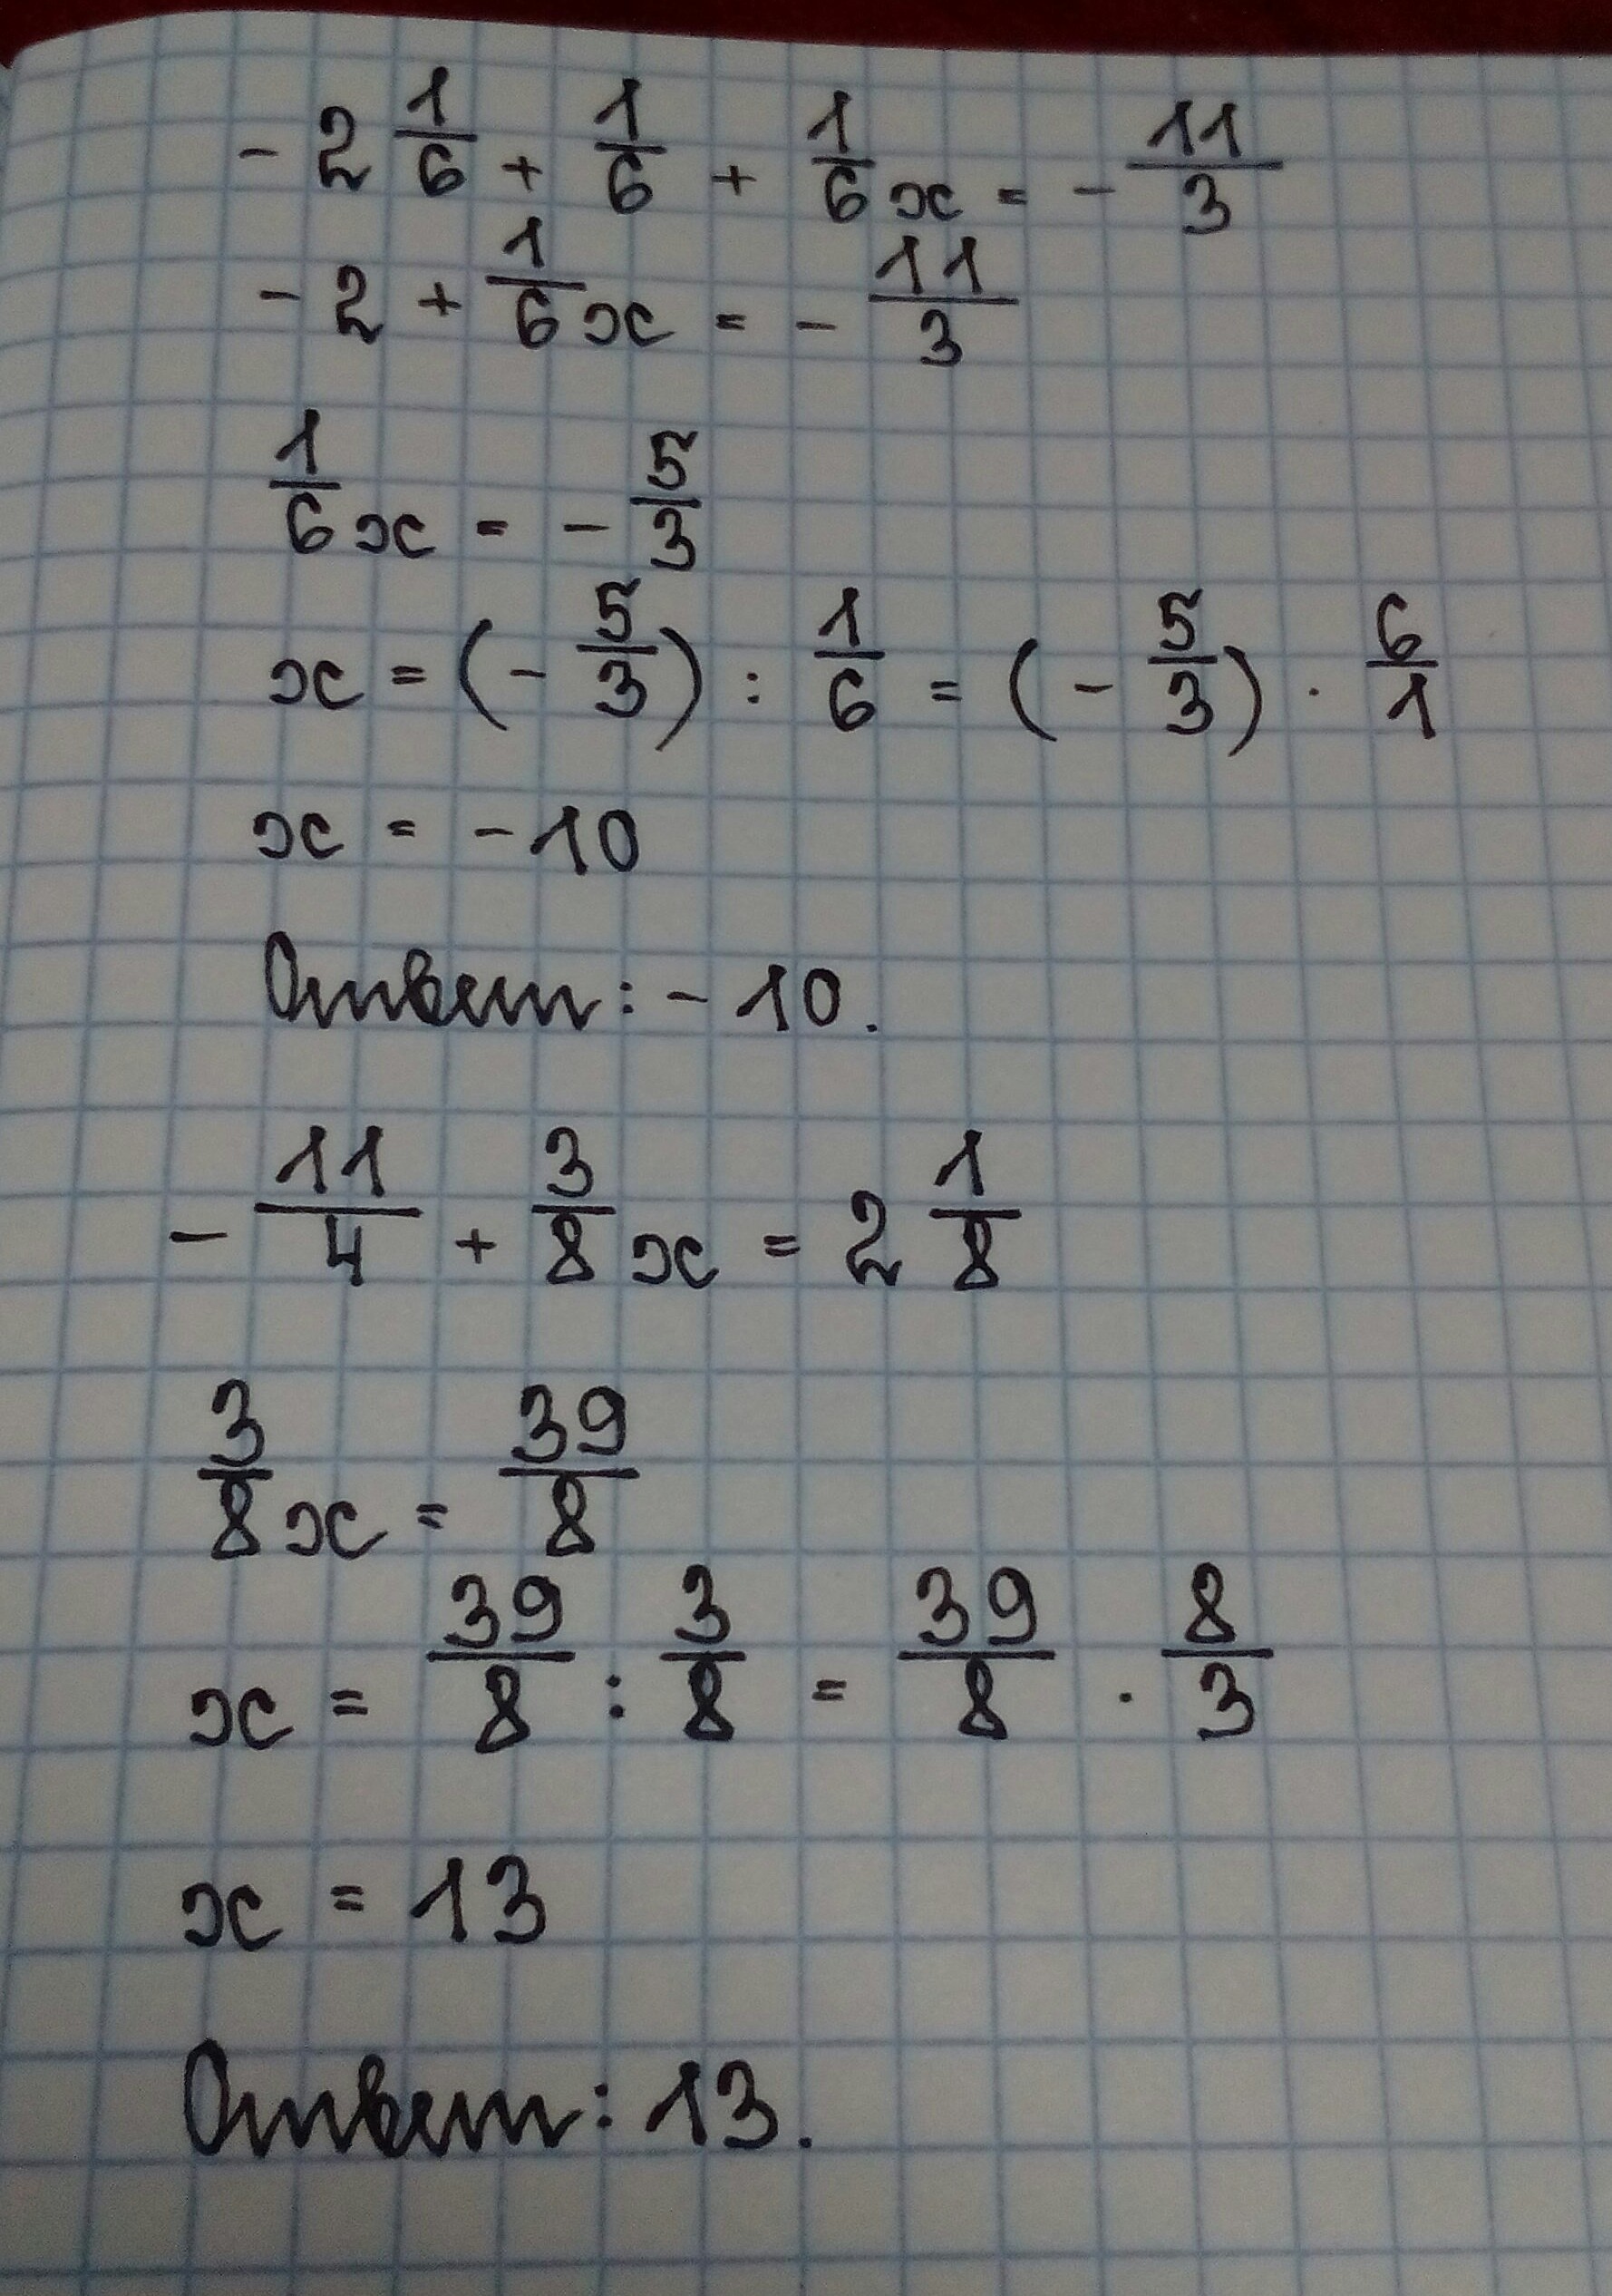 - 2 1/6 + 1/6 + 1/6 x = - 11/3
- 2 + 1/6 x = - 11/3
1/6 x = - 5/3
x = (- 5/3) : 1/6 = (- 5/3) · 6/1
x = - 10
Ответ: - 10.
- 11/4 + 3/8 x = 2 1/8
3/8 x = 39/8
x = 39/8 : 3/8 = 39/8 · 8/3
x = 13
Ответ: 13.